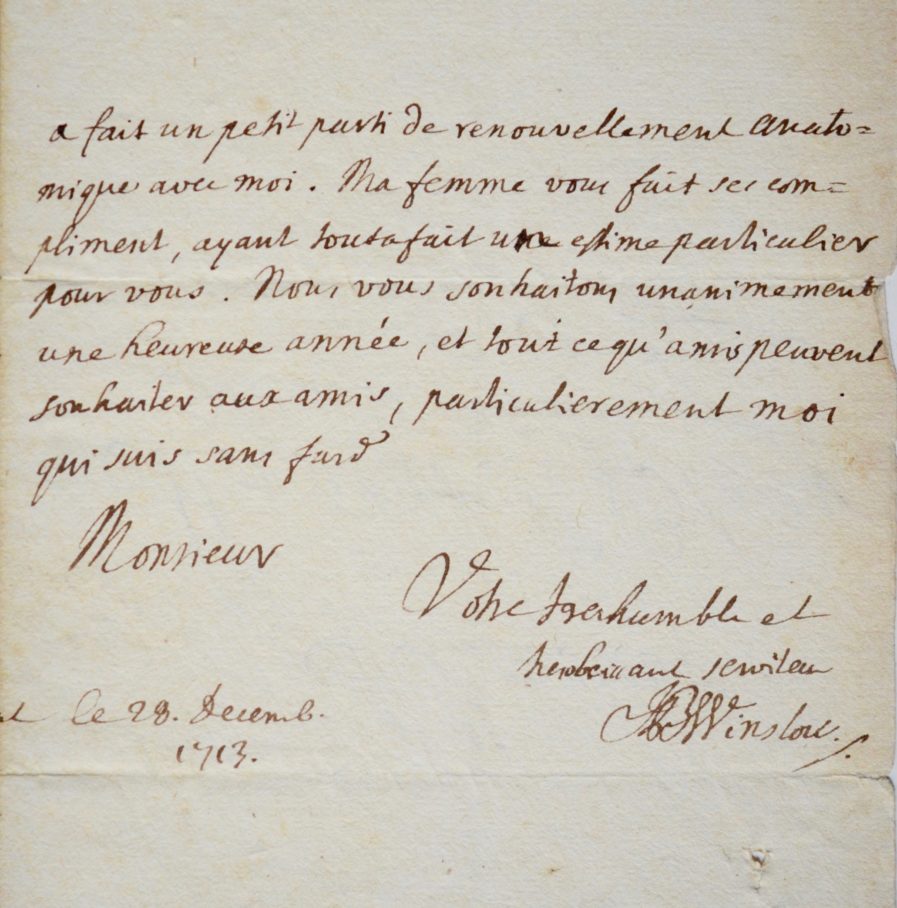 a fait un petit parti de renouvellement anato=
mique avec moi. Ma femme vous fait ses com=
pliment, ayant toutafait une estime particulier
pour vous. Nous vous souhaitons unanimement
une heureuse année, et tout ce qu'amis peuvent
souhaiter aux amis, particulierement moi
qui suis sans fard
Monsieur
Votre treshumble et
tresobeissant serviteur
Winslow.
le 28. Decemb.
1713.